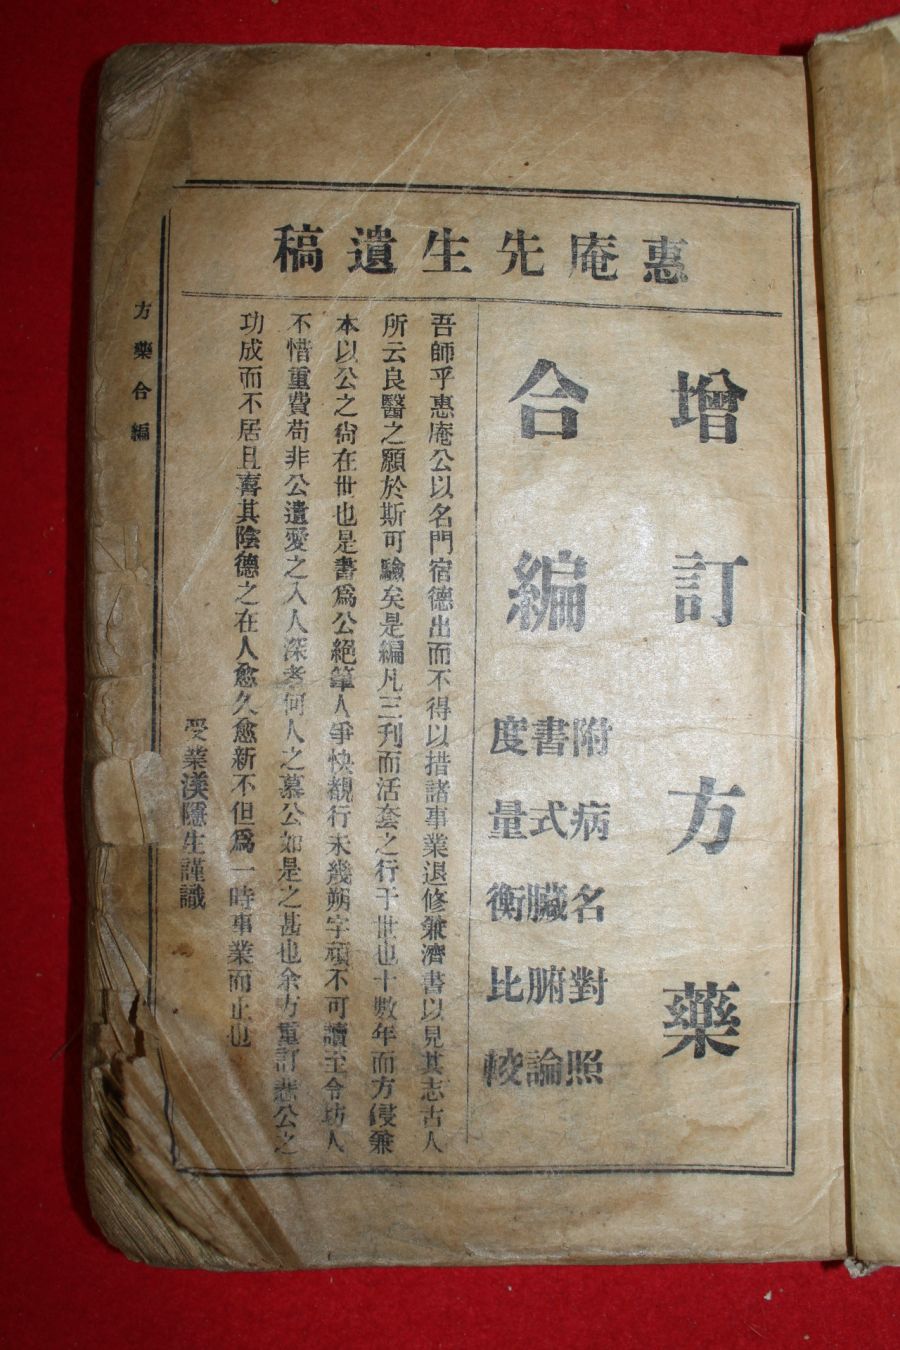 惠庵先生遺稿
增訂方藥
合編
附病名對照
書式臟腑論
度量衡比較
吾師乎惠庵公以名門宿德出而不得以措諸事業退修兼濟書以見其志古人
所云良醫之願於斯可驗矣是編凡三刋而活套之行于世也十數年而方侵兼
本以公之尙在世也是書爲公絕筆人爭快覩行未幾朔字頑不可讀至令坊人
不惜重費苟非公遺愛之入人深者何人之慕公如是之甚也余方重訂悲公之
功成而不居且喜其陰德之在人愈久愈新不但爲一時事業而止也
受業渼隱生謹識
方藥合編